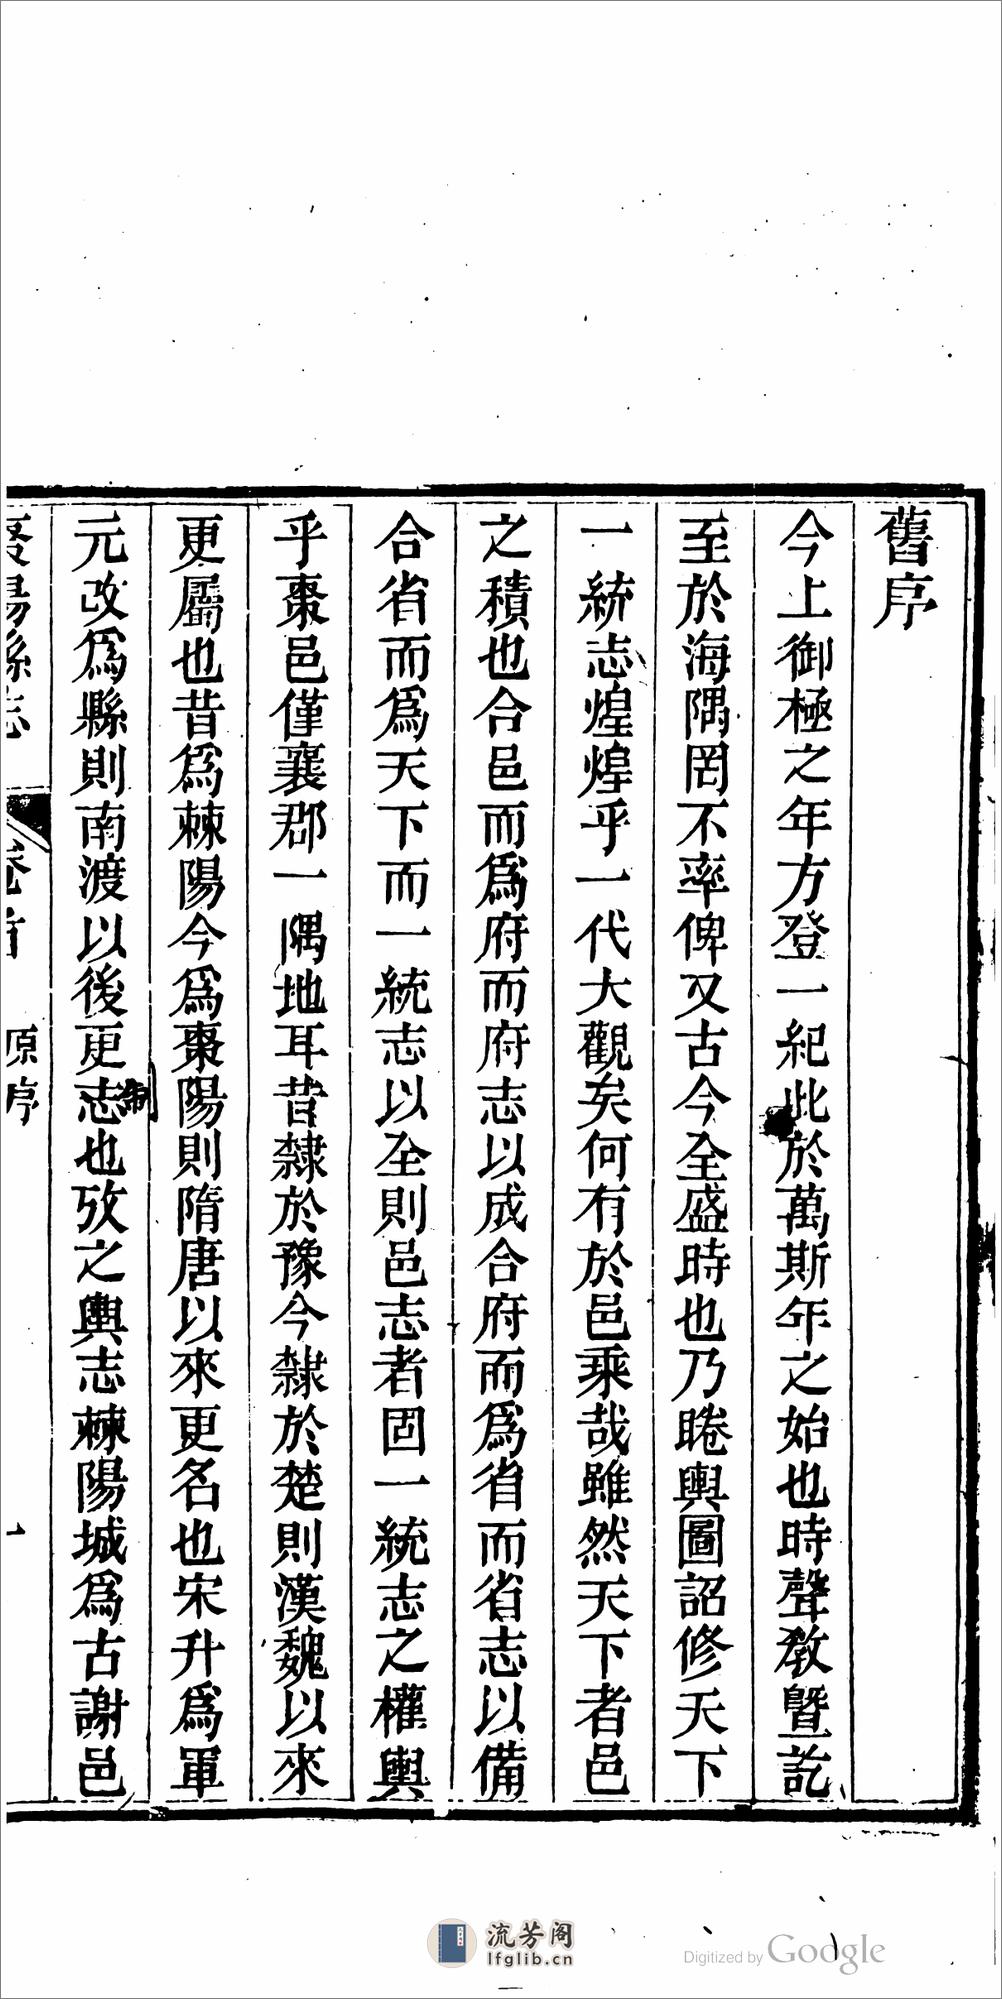 舊序
今上御極之年方登一紀此於萬斯年之始也時聲敎曁訖
至於海隅罔不率俾又古今全盛時也乃睠輿圖詔修天下
一統志煌煌乎一代大觀矣何有於邑乘哉雖然天下者邑
之積也合邑而爲府而府志以成合府而爲省而省志以備
合省而爲天下而一統志以全則邑志者固一統志之權輿
乎棗邑僅襄郡一隅地耳昔隸於豫今隸於楚則漢魏以來
更屬也昔爲棘陽今爲棗陽則隋唐以來更名也宋升爲軍
元改爲縣則南渡以後更志也攷之輿志棘陽城爲古謝邑
制
棗陽縣志 卷首 原序 一
流芳阁
lfglib.cn
Digitized by Google